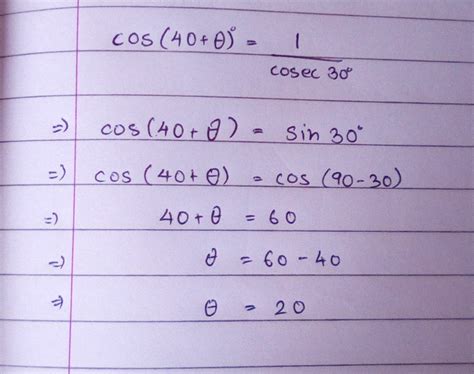 cos(40+θ)° = 1/cosec 30°
⇒) cos(40+θ) = sin 30°
⇒) cos(40+θ) = cos(90-30)
⇒) 40+θ = 60
⇒) θ = 60-40
⇒ θ = 20